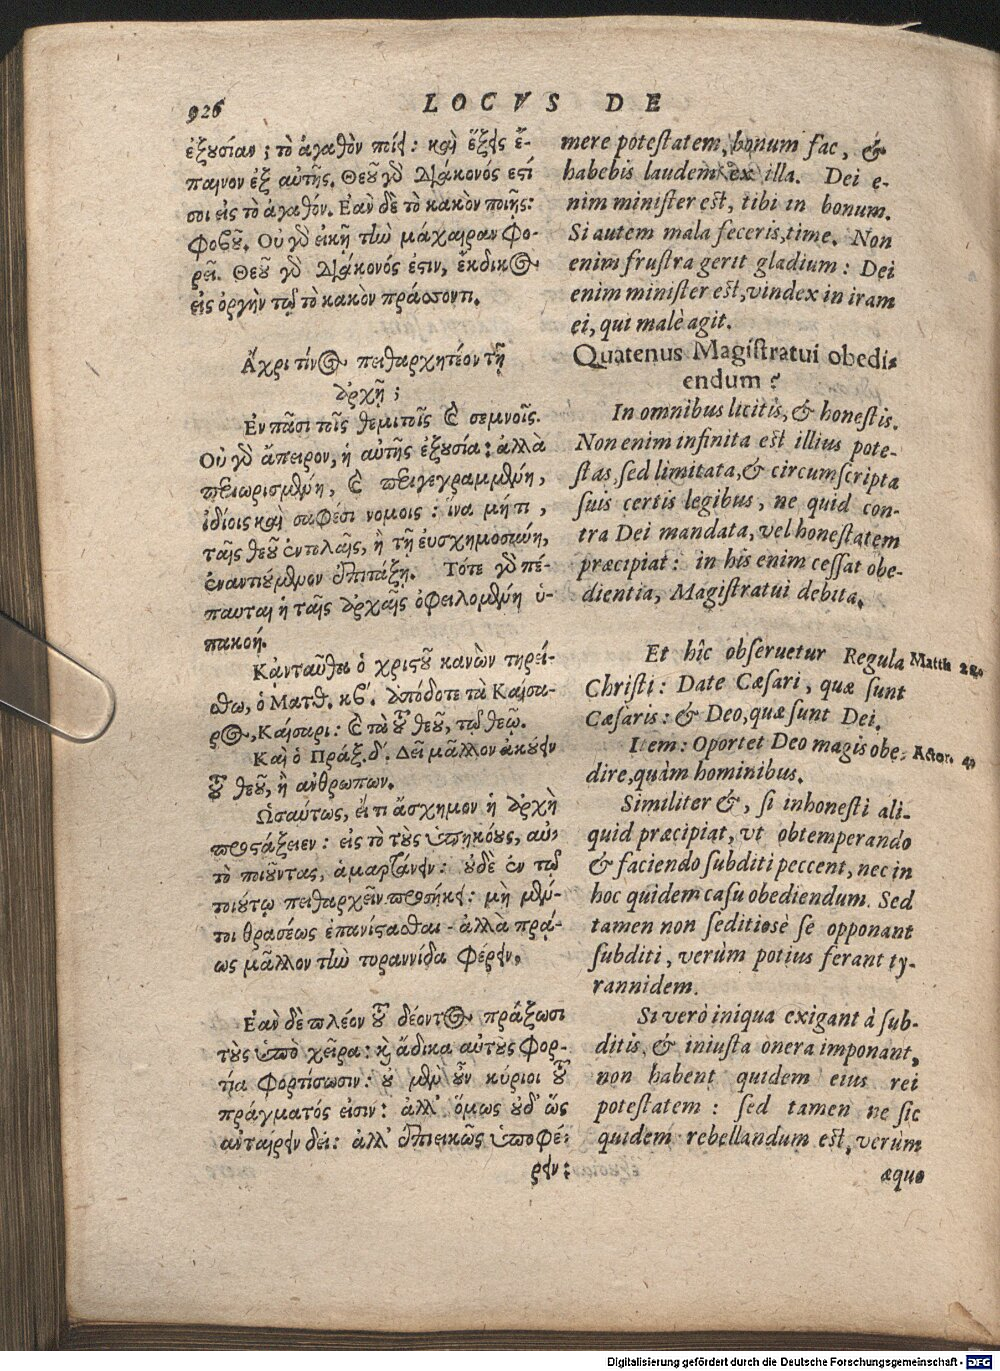 926
LOCVS DE
ἐξουσίαν; τὸ ἀγαθὸν ποίει: καὶ ἕξεις ἔ-
παινον ἐξ αὐτῆς. Θεοῦ γὸ διάκονός ἐστί
σοι εἰς τὸ ἀγαθόν. Ἐὰν δὲ τὸ κακὸν ποιῇς:
φοβοῦ. Οὐ γὸ εἰκῆ τὴν μάχαιραν φο-
ρεῖ. Θεοῦ γὸ διάκονός ἐστιν, ἔκδικος
εἰς ὀργὴν τῷ τὸ κακὸν πράσσοντι.
Ἄχρι τίνος πειθαρχητέον τῇ
ἀρχῇ;
Ἐν πᾶσι τοῖς θεμιτοῖς καὶ σεμνοῖς.
Οὐ γὸ ἄπειρον, ἡ αὐτῆς ἐξουσία: ἀλλὰ
περιωρισμένη, καὶ περιγεγραμμένη,
ἰδίοις καὶ σαφέσι νομοις: ἵνα μή τι,
ταῖς θεοῦ ἐντολαῖς, ἢ τῇ ευσχημοσύνῃ,
ἐναντιούμενον ἐπιτάξῃ. Τότε γὸ πέ-
παυται ἡ ταῖς ἀρχαῖς ὀφειλομένη ὑ-
πακοή.
Κἀνταῦθα ὁ χριστοῦ κανὼν τηρεί-
σθω, ὁ Ματθ. κβ΄. Ἀπόδοτε τὰ Καίσα-
ρος, Καίσαρι: καὶ τὰ τοῦ θεοῦ, τῷ θεῷ.
Καὶ ὁ Πράξ. δ΄. Δεῖ μᾶλλον ἀκούειν
τοῦ θεοῦ, ἢ ανθρωπων.
Ὡσαύτως, εἴ τι ἄσχημον ἡ ἀρχὴ
προστάξειεν: εἰς τὸ τοὺς ὑπηκόους, αὐ-
τὸ ποιοῦντας, ἁμαρτάνειν: οὐδὲ ἐν τῷ
τοιούτῳ πειθαρχεῖν προσήκει: μὴ μέν-
τοι θρασέως ἐπανίστασθαι - ἀλλὰ πρᾴ-
ως μᾶλλον τὴν τυραννίδα φέρειν.
Ἐὰν δὲ πλέον τοῦ δέοντος πράξωσι
τοὺς ὑπὸ χεῖρα: καὶ ἄδικα αὐτοὺς φορ-
τία φορτίσωσιν: οὐ μὲν οὖν κύριοι τοῦ
πράγματός εἰσιν: ἀλλ' ὅμως οὐδ' ὣς
ανταίρειν δεῖ: ἀλλ' ἐπιεικῶς ὑποφέ-
ρειν:
mere potestatem, bonum fac, &
habebis laudem ex illa. Dei e-
nim minister est, tibi in bonum.
Si autem mala feceris, time. Non
enim frustra gerit gladium: Dei
enim minister est, vindex in iram
ei, qui malè agit.
Quatenus Magistratui obedi-
endum?
In omnibus licitis, & honestis.
Non enim infinita est illius pote-
stas, sed limitata, & circumscripta
suis certis legibus, ne quid con-
tra Dei mandata, vel honestatem
præcipiat: in his enim cessat obe-
dientia, Magistratui debita.
Et hîc obseruetur Regula
Christi: Date Cæsari, quæ sunt
Cæsaris: & Deo, quæ sunt Dei.
Item: Oportet Deo magis obe-
dire, quàm hominibus.
Similiter &, si inhonesti ali-
quid præcipiat, vt obtemperando
& faciendo subditi peccent, nec in
hoc quidem casu obediendum. Sed
tamen non seditiosè se opponant
subditi, verùm potius ferant ty-
rannidem.
Si verò iniqua exigant à sub-
ditis, & iniusta onera imponant,
non habent quidem eius rei
potestatem: sed tamen ne sic
quidem rebellandum est, verùm
æquo
Matth 22.
Actor. 4.
Digitalisierung gefördert durch die Deutsche Forschungsgemeinschaft - DFG